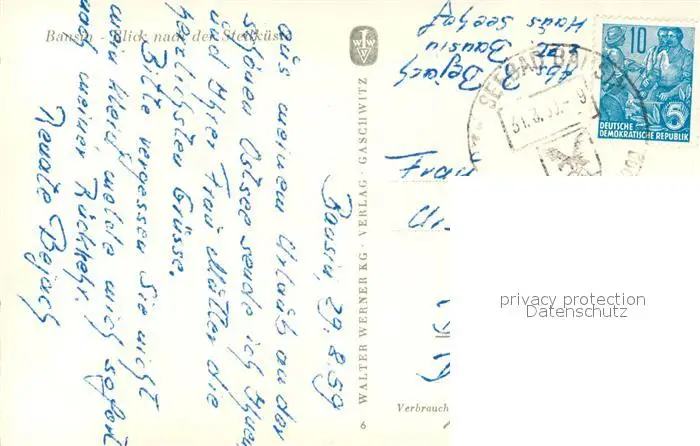 Bansin - Blick nach der Steilküste
Bansin, 29.8.59
aus meinem Urlaub an der
schönen Ostsee sende ich Ihnen
und Ihrer Frau Mutter die
herzlichsten Grüsse.
Bitte vergessen Sie nicht
mein Kleid, melde mich sofort
nach meiner Rückkehr.
Renate Bejach
WALTER WERNER KG · VERLAG · GASCHWITZ
6
Verbrauch
Abs. Bejach
zzt. Bansin
Haus Seehof
Frau
SEEBAD BANSIN
31.8.59
10
5
DEUTSCHE
DEMOKRATISCHE REPUBLIK
privacy protection
Datenschutz